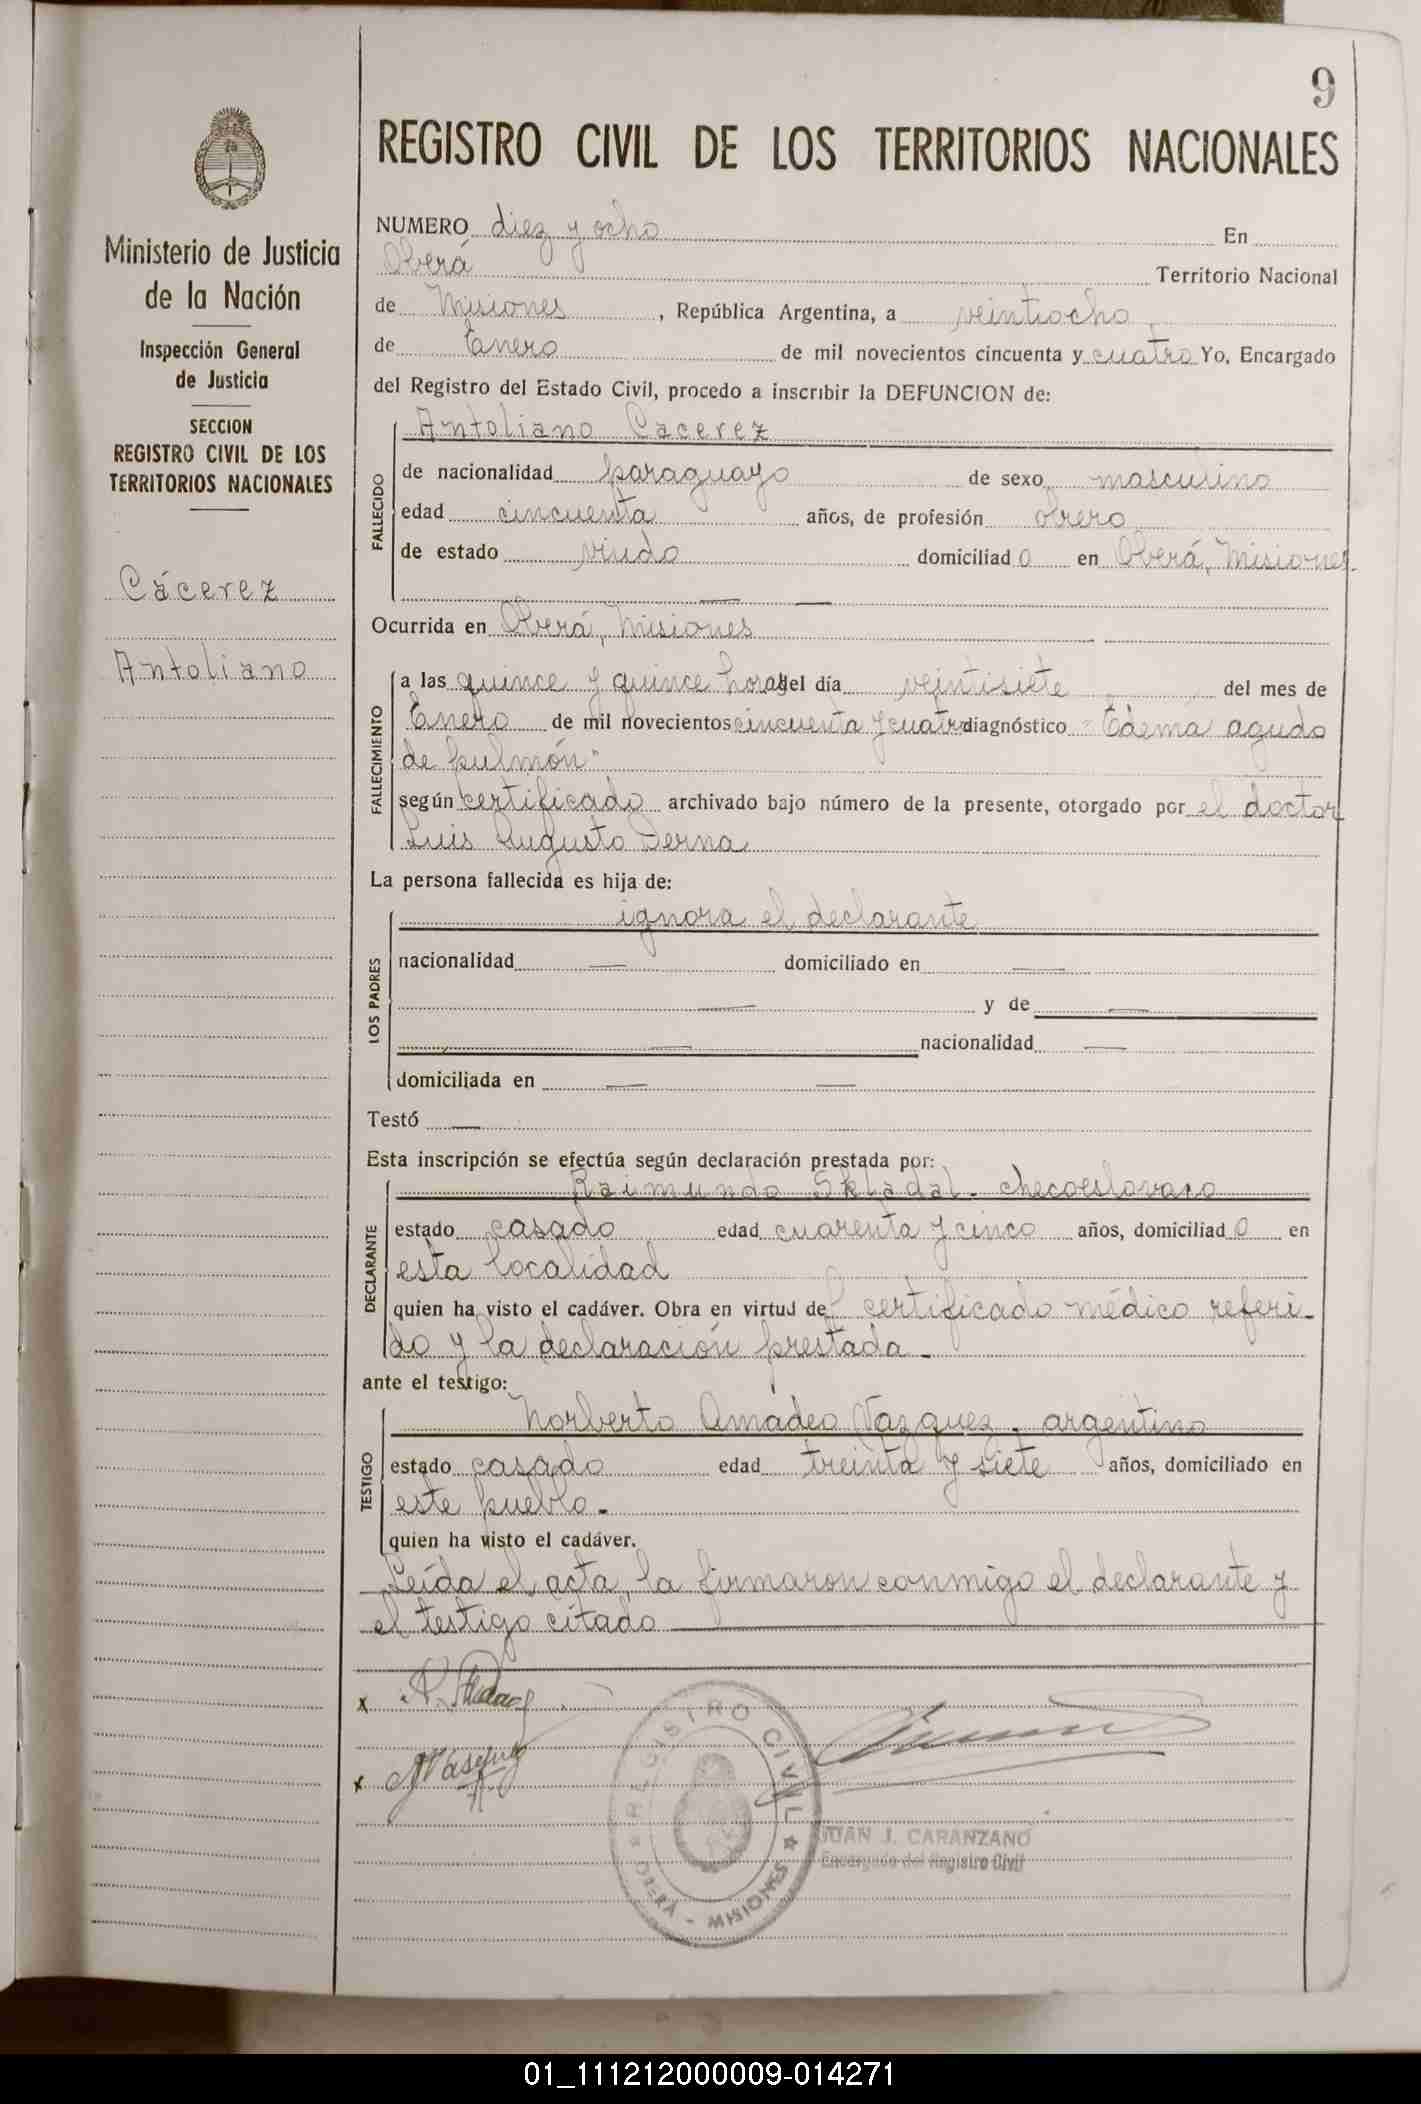 9
REGISTRO CIVIL DE LOS TERRITORIOS NACIONALES
Ministerio de Justicia
de la Nación
Inspección General
de Justicia
SECCION
REGISTRO CIVIL DE LOS
TERRITORIOS NACIONALES
Cácerez
Antoliano
NUMERO diez y ocho En
Oberá Territorio Nacional
de Misiones, República Argentina, a veintiocho
de Enero de mil novecientos cincuenta y cuatro Yo, Encargado
del Registro del Estado Civil, procedo a inscribir la DEFUNCION de:
Antoliano Cacerez
FALLECIDO
de nacionalidad paraguayo de sexo masculino
edad cincuenta años, de profesión obrero
de estado viudo domiciliado en Oberá, Misiones.
— —
Ocurrida en Oberá, Misiones
FALLECIMIENTO
a las quince y quince horas del día veintisiete del mes de
Enero de mil novecientos cincuenta y cuatro diagnóstico "Edema agudo
de pulmón"
según certificado archivado bajo número de la presente, otorgado por el doctor
Luis Augusto Derna
La persona fallecida es hija de:
LOS PADRES
ignora el declarante
nacionalidad — domiciliado en —
— y de —
— nacionalidad —
domiciliada en — —
Testó —
Esta inscripción se efectúa según declaración prestada por:
DECLARANTE
Raimundo Skladal. checoeslovaco
estado casado edad cuarenta y cinco años, domiciliado en
esta localidad
quien ha visto el cadáver. Obra en virtud del certificado médico referi-
do y la declaración prestada.-
ante el testigo:
TESTIGO
Norberto Amadeo Vazquez, argentino
estado casado edad treinta y siete años, domiciliado en
este pueblo.-
quien ha visto el cadáver.
Leída el acta, la firmaron conmigo el declarante y
el testigo citado
x
x
REGISTRO CIVIL
OBERA - MISIONES
JUAN J. CARANZANO
Encargado del Registro Civil
01_111212000009-014271